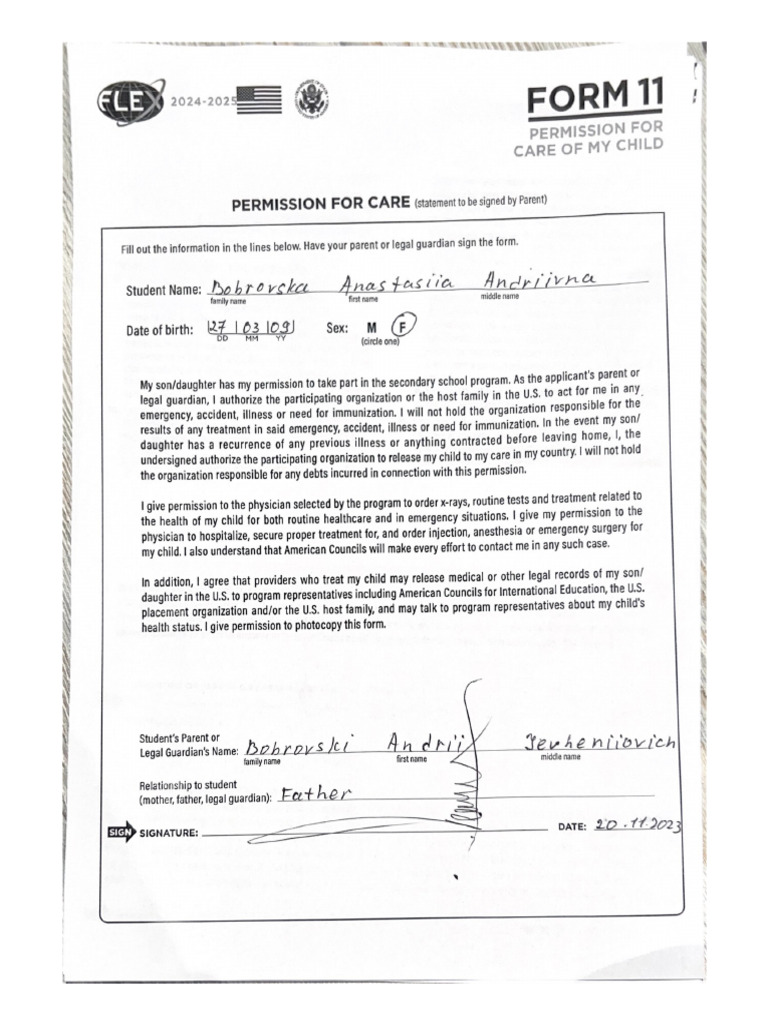 FLEX 2024-2025
FORM 11
PERMISSION FOR
CARE OF MY CHILD
PERMISSION FOR CARE (statement to be signed by Parent)
Fill out the information in the lines below. Have your parent or legal guardian sign the form.
Student Name: Bobrovska Anastasiia Andriivna
family name first name middle name
Date of birth: 27 | 03 | 09 Sex: M F
DD MM YY (circle one)
My son/daughter has my permission to take part in the secondary school program. As the applicant's parent or
legal guardian, I authorize the participating organization or the host family in the U.S. to act for me in any
emergency, accident, illness or need for immunization. I will not hold the organization responsible for the
results of any treatment in said emergency, accident, illness or need for immunization. In the event my son/
daughter has a recurrence of any previous illness or anything contracted before leaving home, I, the
undersigned authorize the participating organization to release my child to my care in my country. I will not hold
the organization responsible for any debts incurred in connection with this permission.
I give permission to the physician selected by the program to order x-rays, routine tests and treatment related to
the health of my child for both routine healthcare and in emergency situations. I give my permission to the
physician to hospitalize, secure proper treatment for, and order injection, anesthesia or emergency surgery for
my child. I also understand that American Councils will make every effort to contact me in any such case.
In addition, I agree that providers who treat my child may release medical or other legal records of my son/
daughter in the U.S. to program representatives including American Councils for International Education, the U.S.
placement organization and/or the U.S. host family, and may talk to program representatives about my child's
health status. I give permission to photocopy this form.
Student's Parent or
Legal Guardian's Name: Bobrovski Andrii Ievheniiovich
family name first name middle name
Relationship to student
(mother, father, legal guardian): Father
SIGN SIGNATURE: DATE: 20.11.2023